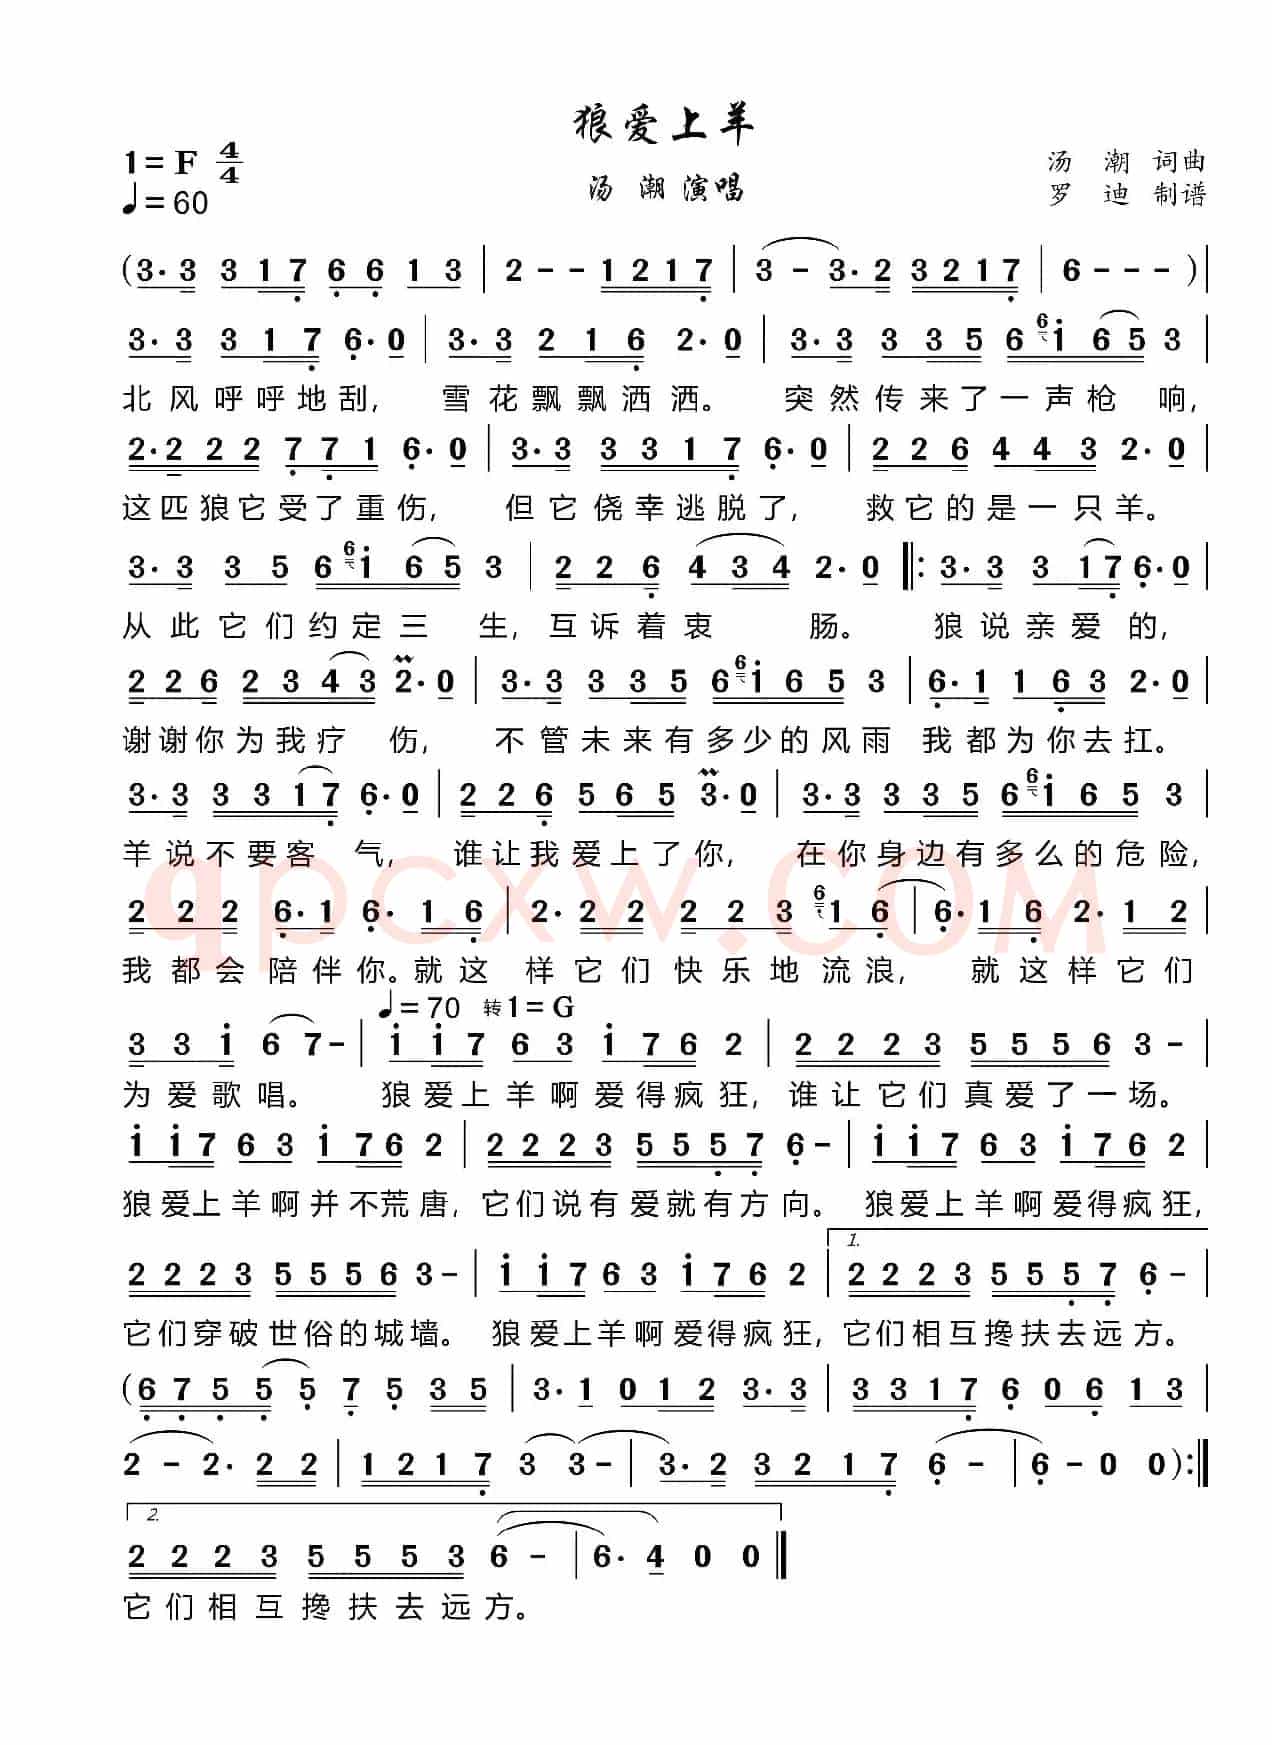 狼爱上羊
1=F 4/4
汤潮演唱
汤 潮 词曲
♩=60
罗 迪 制谱
(3·3 3 1 7 6 6 1 3 | 2 - - 1 2 1 7 | 3 - 3·2 3 2 1 7 | 6 - - - )|
3·3 3 1 7 6·0 | 3·3 2 1 6 2·0 | 3·3 3 3 5 6 6 i 6 5 3 |
北风呼呼地刮, 雪花飘飘洒洒。 突然传来了一声枪 响,
2·2 2 2 7 7 1 6·0 | 3·3 3 3 1 7 6·0 | 2 2 6 4 4 3 2·0 |
这匹狼它受了重伤, 但它侥幸逃脱了, 救它的是一只羊。
3·3 3 5 6 6 i 6 5 3 | 2 2 6 4 3 4 2·0 ‖: 3·3 3 1 7 6·0 |
从此它们约定三 生, 互诉着衷 肠。 狼说亲爱的,
2 2 6 2 3 4 3 2·0 | 3·3 3 3 5 6 6 i 6 5 3 | 6·1 1 6 3 2·0 |
谢谢你为我疗 伤, 不管未来有多少的风雨 我都为你去扛。
3·3 3 3 1 7 6·0 | 2 2 6 5 6 5 3·0 | 3·3 3 3 5 6 6 i 6 5 3 |
羊说不要客 气, 谁让我爱上了你, 在你身边有多么的危险,
2 2 2 6·1 6·1 6 | 2·2 2 2 2 3 6 1 6 | 6·1 6 2·1 2 |
我都会陪伴你。就这 样它们快乐地流浪, 就这样它们
♩=70 转1=G
3 3 i 6 7 - | i i 7 6 3 i 7 6 2 | 2 2 2 3 5 5 5 6 3 - |
为爱歌唱。 狼爱上羊啊爱得疯狂, 谁让它们真爱了一场。
i i 7 6 3 i 7 6 2 | 2 2 2 3 5 5 5 7 6 - | i i 7 6 3 i 7 6 2 |
狼爱上羊啊并不荒唐, 它们说有爱就有方向。 狼爱上羊啊爱得疯狂,
1.
2 2 2 3 5 5 5 6 3 - | i i 7 6 3 i 7 6 2 | 2 2 2 3 5 5 5 7 6 - |
它们穿破世俗的城墙。 狼爱上羊啊爱得疯狂, 它们相互搀扶去远方。
(6 7 5 5 5 7 5 3 5 | 3·1 0 1 2 3·3 | 3 3 1 7 6 0 6 1 3 |
2 - 2·2 2 | 1 2 1 7 3 3 - | 3·2 3 2 1 7 6 - | 6 - 0 0):‖
2.
2 2 2 3 5 5 5 3 6 - | 6·4 0 0 ‖
它们相互搀扶去远方。
qpcxw.COM